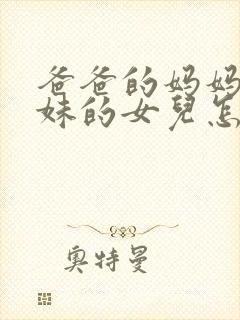 爸爸的妈妈
妹的女兒怎
奥特曼